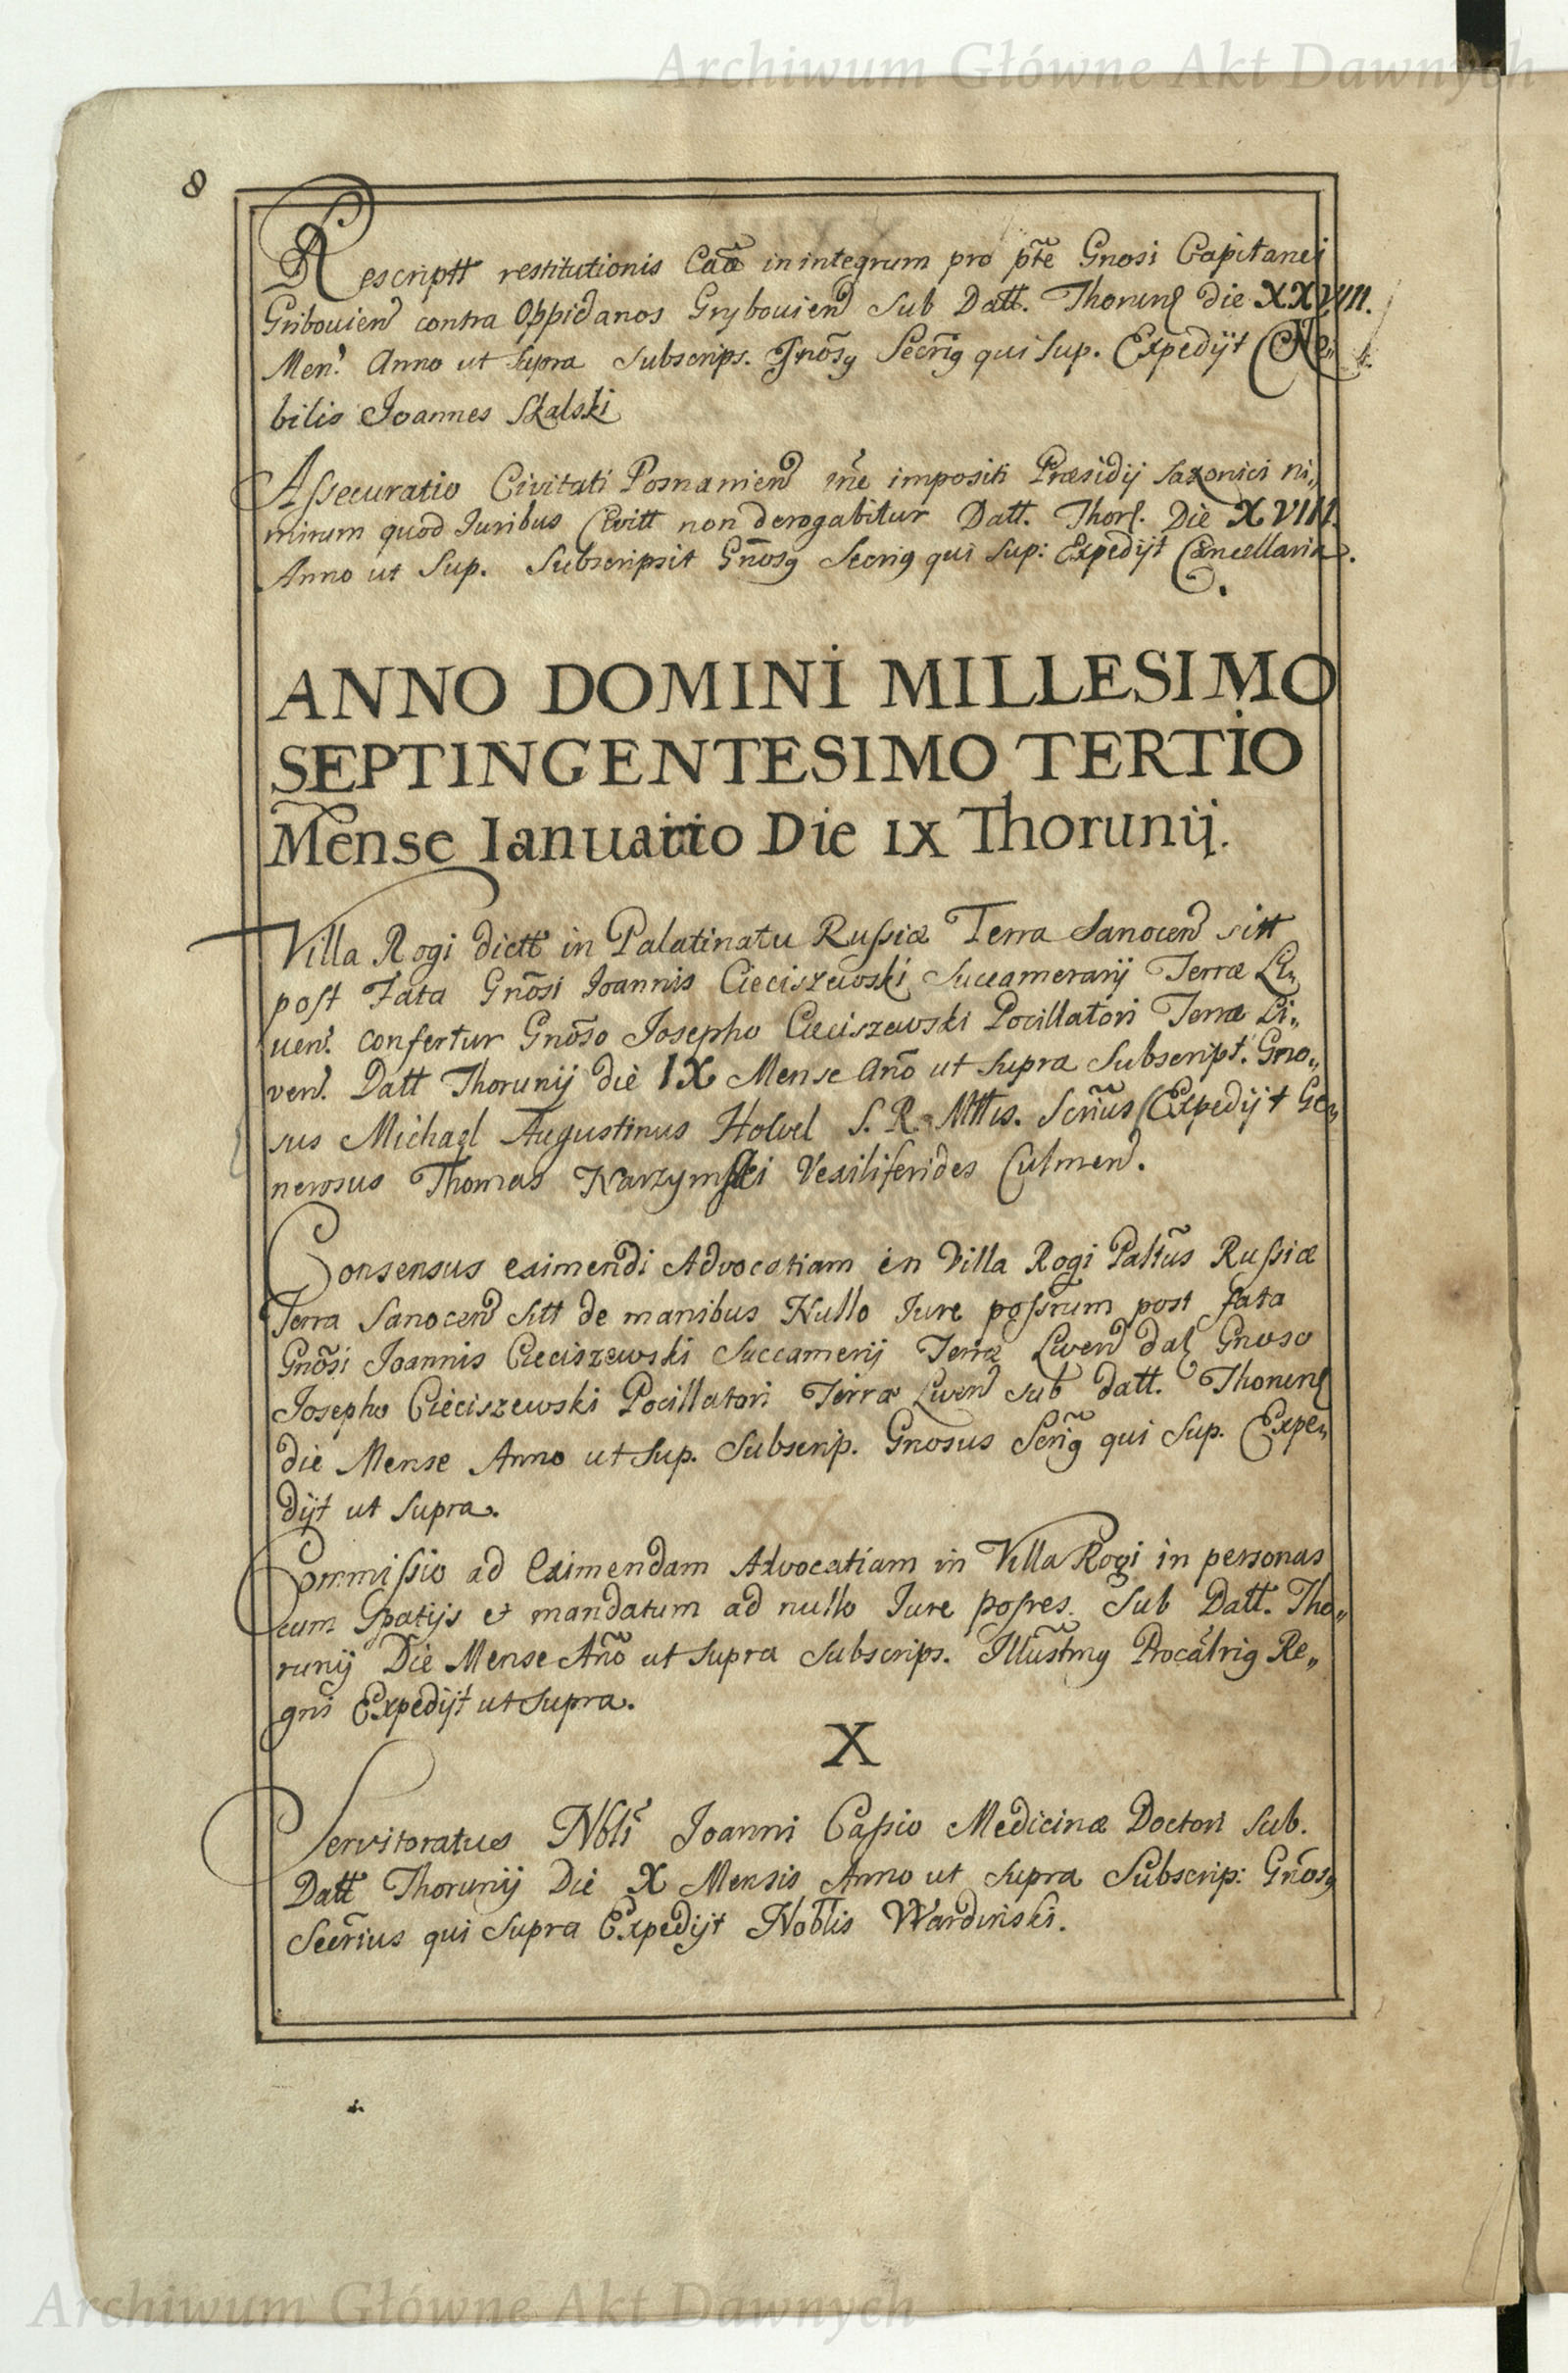 Archiwum Główne Akt Dawnych
8
Rescriptt restitutionis Caã in integrum pro pt̃e Gnosi Capitanei
Gribouien contra Oppidanos Grybouien sub Datt. Thorun die XXVIII.
Men. Anno ut supra subscrips. Gnõsq Secrĩq qui sup. Expedijt No„
bilis Joannes Skalski
Assecuratio Civitati Posnanien rñe impositi Præsidij saxonici ni„
mirum quod Juribus Civitt non derogabitur Datt. Thor. Die XVIII.
Anno ut sup. Subscripsit Gñosq Secriq qui sup: Expedijt Cancellaria.
ANNO DOMINI MILLESIMO
SEPTINGENTESIMO TERTIO
Mense Ianuario Die IX Thorunij.
Villa Rogi dictt in Palatinatu Russiæ Terra Sanocen sitt
post Fata Gnõsi Joannis Cieciszewski Succamerarij Terræ Li„
uen. confertur Gnõso Josepho Cieciszewski Pocillatori Terræ Li„
ven. Datt Thorunij die IX Mense Anõ ut supra Subscript. Gno„
sus Michael Augustinus Holvel S. R. Mttis. Scriũus Expedijt Ge„
nerosus Thomas Karzymski Vexiliferides Culmen.
Consensus eximendi Advocatiam in Villa Rogi Paltũs Russiæ
Terra Sanocen sitt de manibus Nullo Jure possrum post fata
Gnõsi Joannis Cieciszewski Succamerij Terræ Liven dat Gnoso
Josepho Cieciszewski Pocillatori Terræ Liven sub datt. Thorun
die Mense Anno ut sup. Subscrip. Gnosus Scrĩq qui sup. Expe„
dijt ut supra.
Commissio ad Eximendam Advocatiam in Villa Rogi in personas
cum Spatijs et mandatum ad nullo Jure posres. Sub Datt. Tho„
runij Die Mense Añõ ut supra subscrips. Illustr̃mq Procãlriq Re„
gni Expedijt ut supra.
X
Servitoratus Nbli Joanni Cassio Medicinæ Doctori sub.
Datt Thorunij Die X Mensis Anno ut supra Subscrip: Gñosq
Secr̃ius qui supra Expedijt Noblis Wardinski.
Archiwum Główne Akt Dawnych